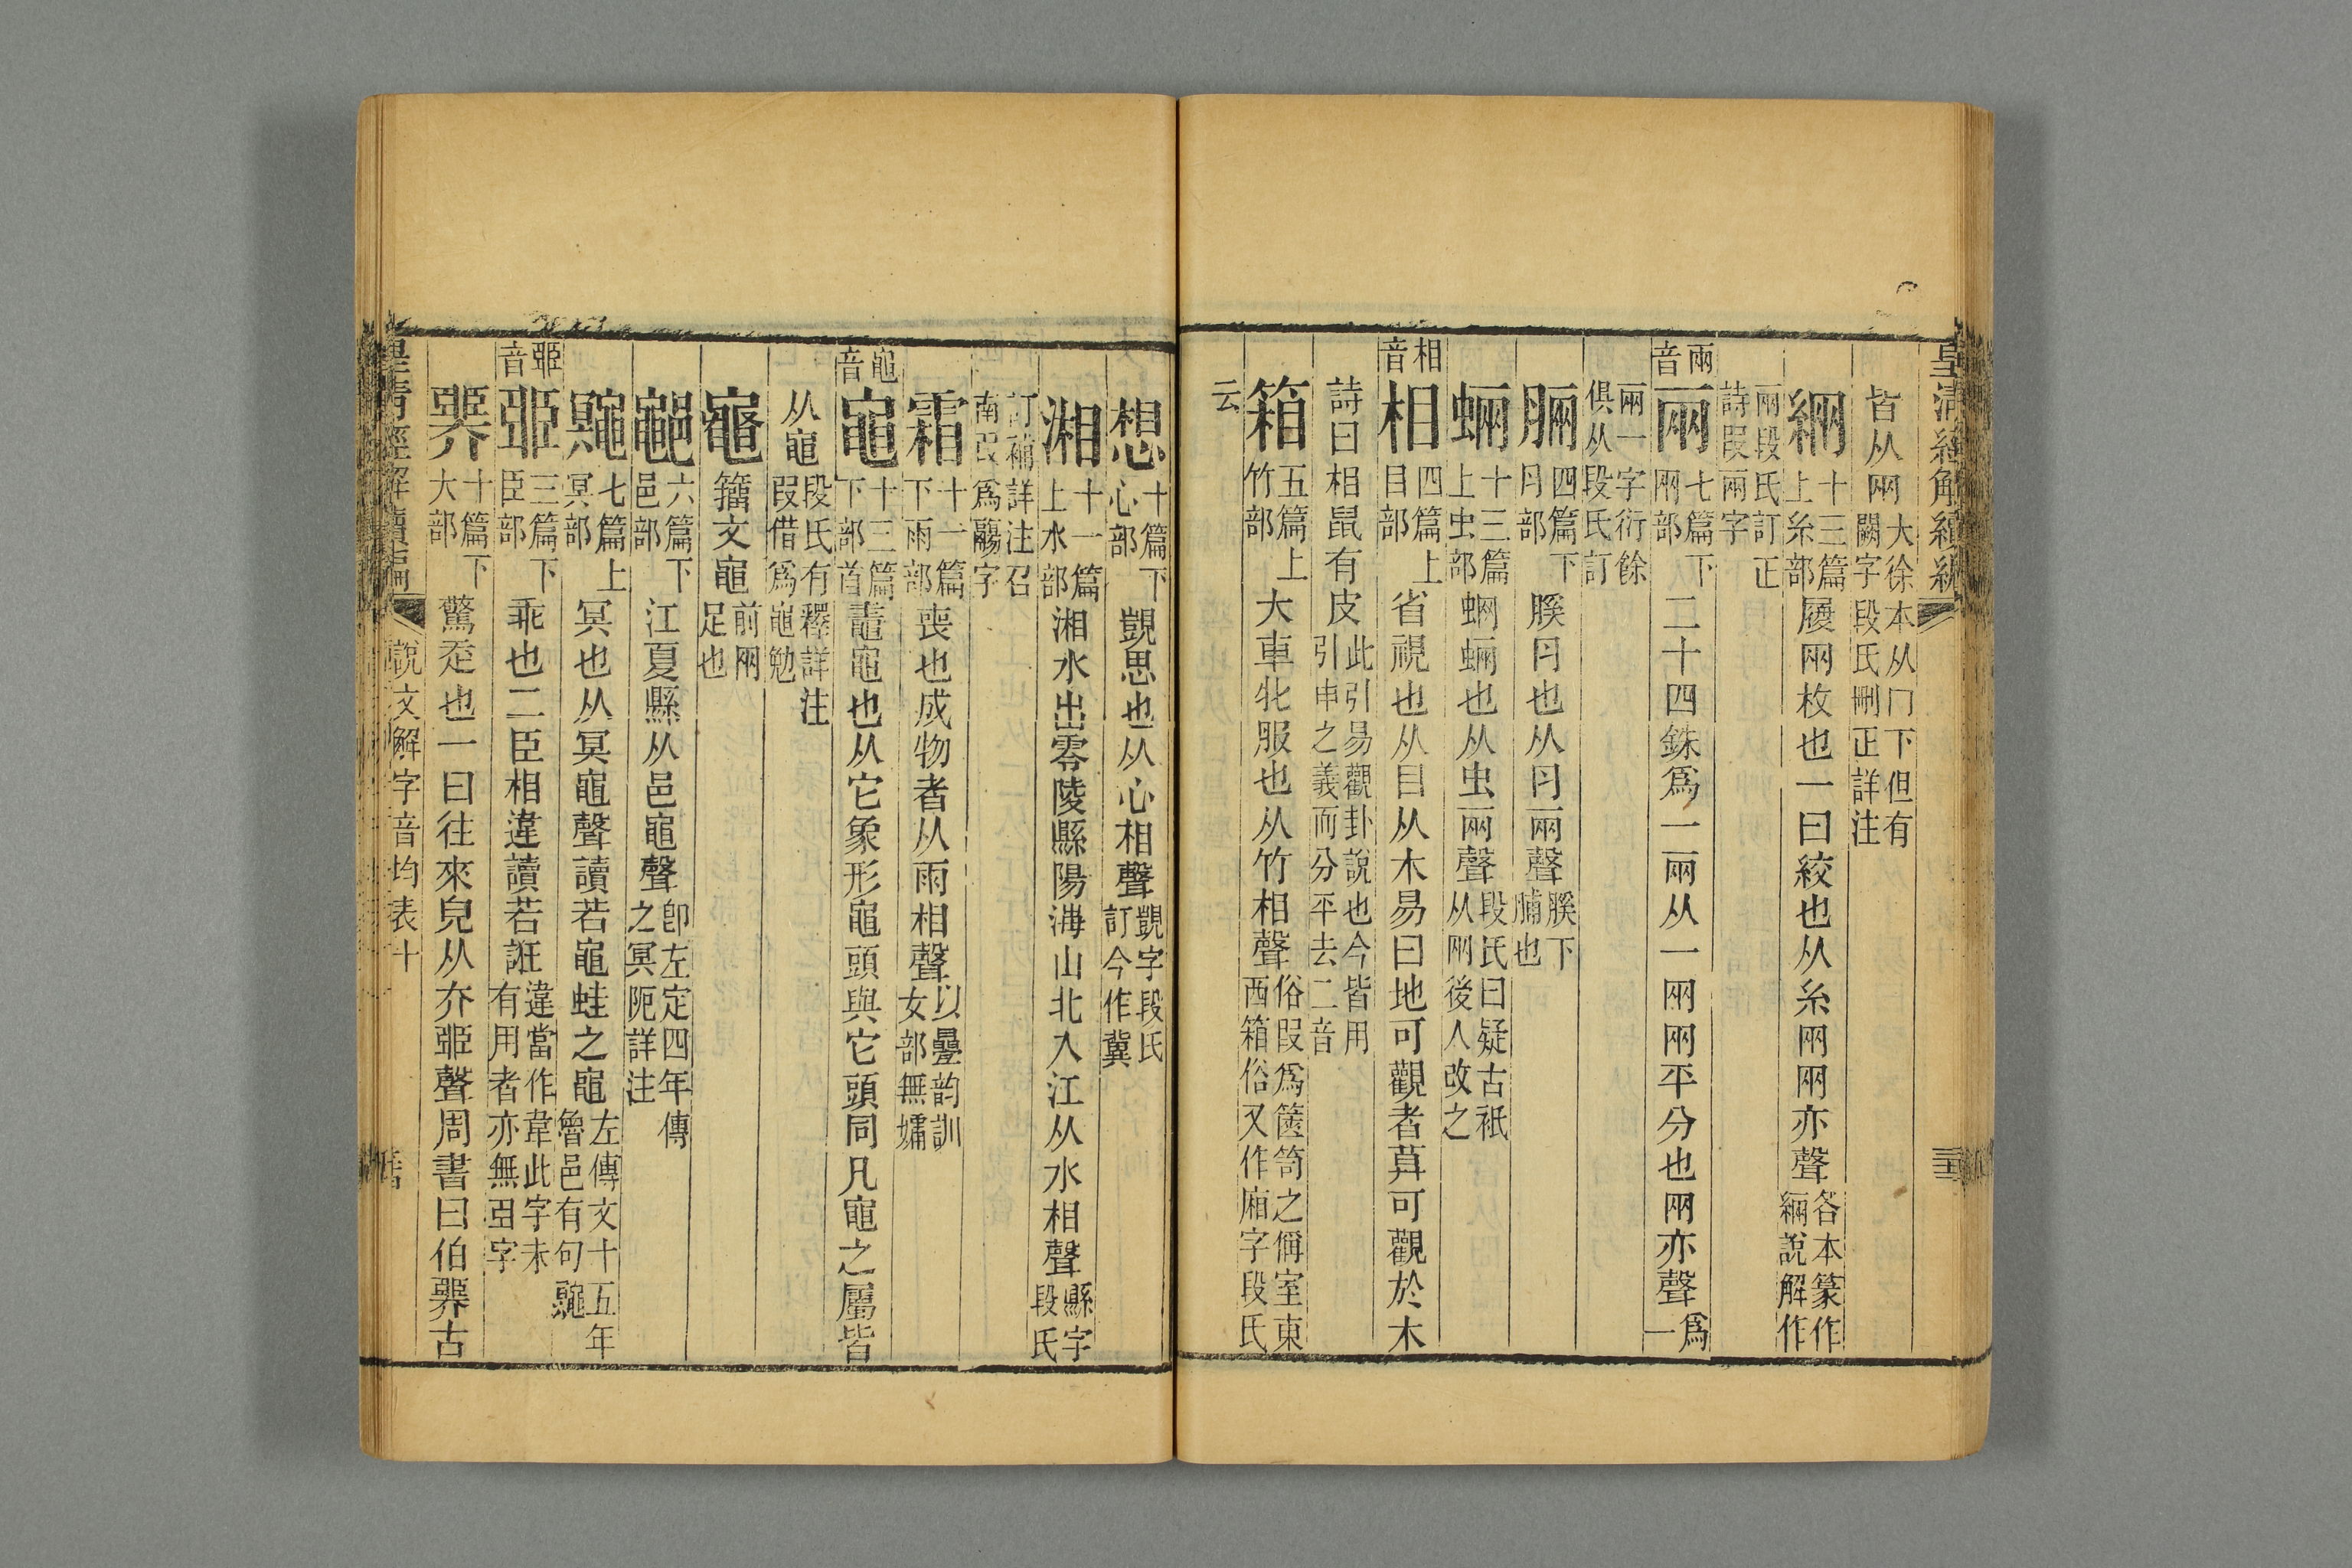 皇清經解續編
皆从㒳大徐本从冂下但有闕字段氏刪正詳注
緉十三篇上糸部履㒳枚也一曰絞也从糸㒳㒳亦聲各本篆作緉說解作
兩段氏訂正詩叚兩字
兩音
兩七篇下㒳部二十四銖爲一兩从一㒳㒳平分也㒳亦聲爲一
兩一字衍餘俱从段氏訂
脼四篇下肉部膎肉也从肉兩聲膎下脯也
蜽十三篇上虫部蛧蜽也从虫兩聲段氏曰疑古衹从网後人改之
相音
相四篇上目部省視也从目从木易曰地可觀者莫可觀於木
詩曰相鼠有皮此引易觀卦說也今皆用引申之義而分平去二音
箱五篇上竹部大車牝服也从竹相聲俗叚爲篋笥之偁室東西箱俗又作廂字段氏
云
想十篇下心部覬思也从心相聲覬字段氏訂今作冀
湘十一篇上水部湘水出零陵縣陽海山北入江从水相聲縣字段氏
訂補詳注召南叚爲鬺字
霜十一篇下雨部喪也成物者从雨相聲以疊韵訓女部無孀
黽音
黽十三篇下部首鼃黽也从它象形黽頭與它頭同凡黽之屬皆
从黽段氏有釋詳注叚借爲黽勉
𪓑籒文黽前㒳足也
鄳六篇下邑部江夏縣从邑黽聲卽左定四年傳之冥阨詳注
鼆七篇上冥部冥也从冥黽聲讀若黽蛙之黽左傳文十五年魯邑有句鼆
𦣞音
𦣦三篇下臣部乖也二臣相違讀若誑違當作韋此字未有用者亦無𦣦字
臩十篇下大部驚走也一曰往來皃从夰𦣦聲周書曰伯臩古
皇清經解續編
說文解字音均表十